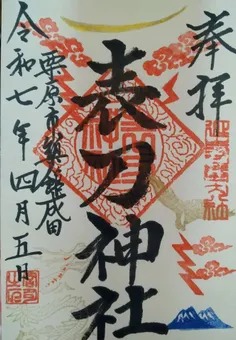 奉拝
表刀神社
栗原市築館成田
令和七年四月五日